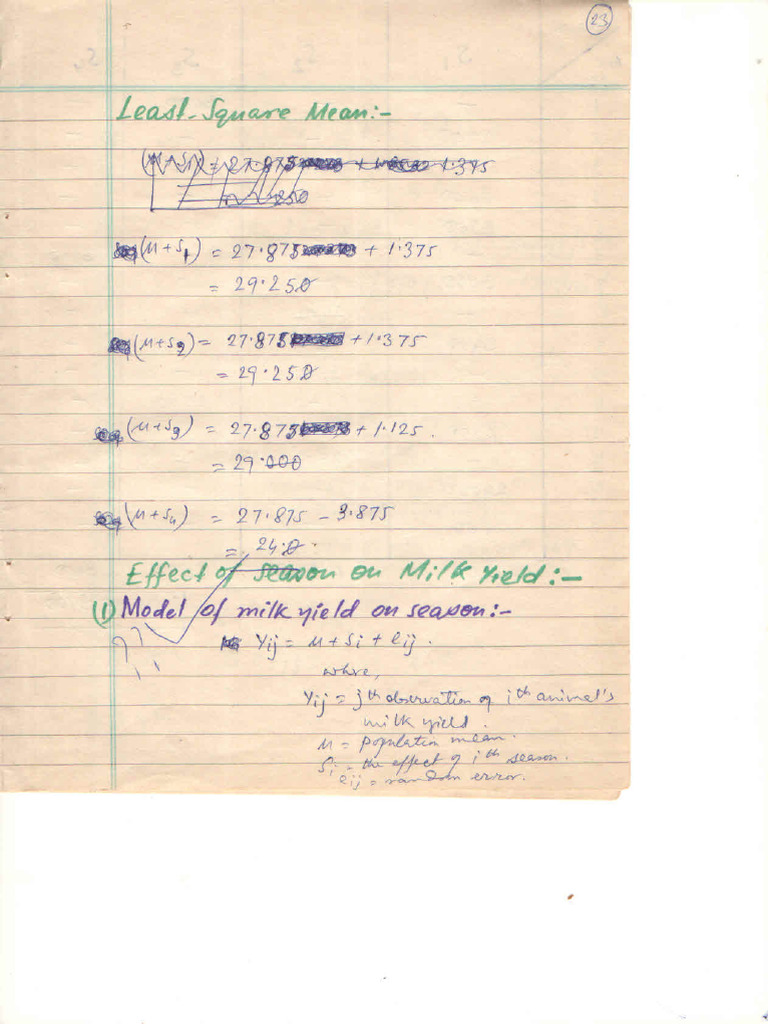 23
Least-Square Mean:-
(M+S1) = 27.875 + 1.375
= 29.250
(M+S2) = 27.875 + 1.375
= 29.250
(M+S3) = 27.875 + 1.125.
= 29.000
(M+S4) = 27.875 - 3.875
= 24.0
Effect of season on Milk Yield:-
(1) Model of milk yield on season:-
??
Yij = M + Si + eij.
where,
Yij = jth observation of ith animal's
milk yield.
M = population mean.
Si = the effect of ith season.
eij = random error.